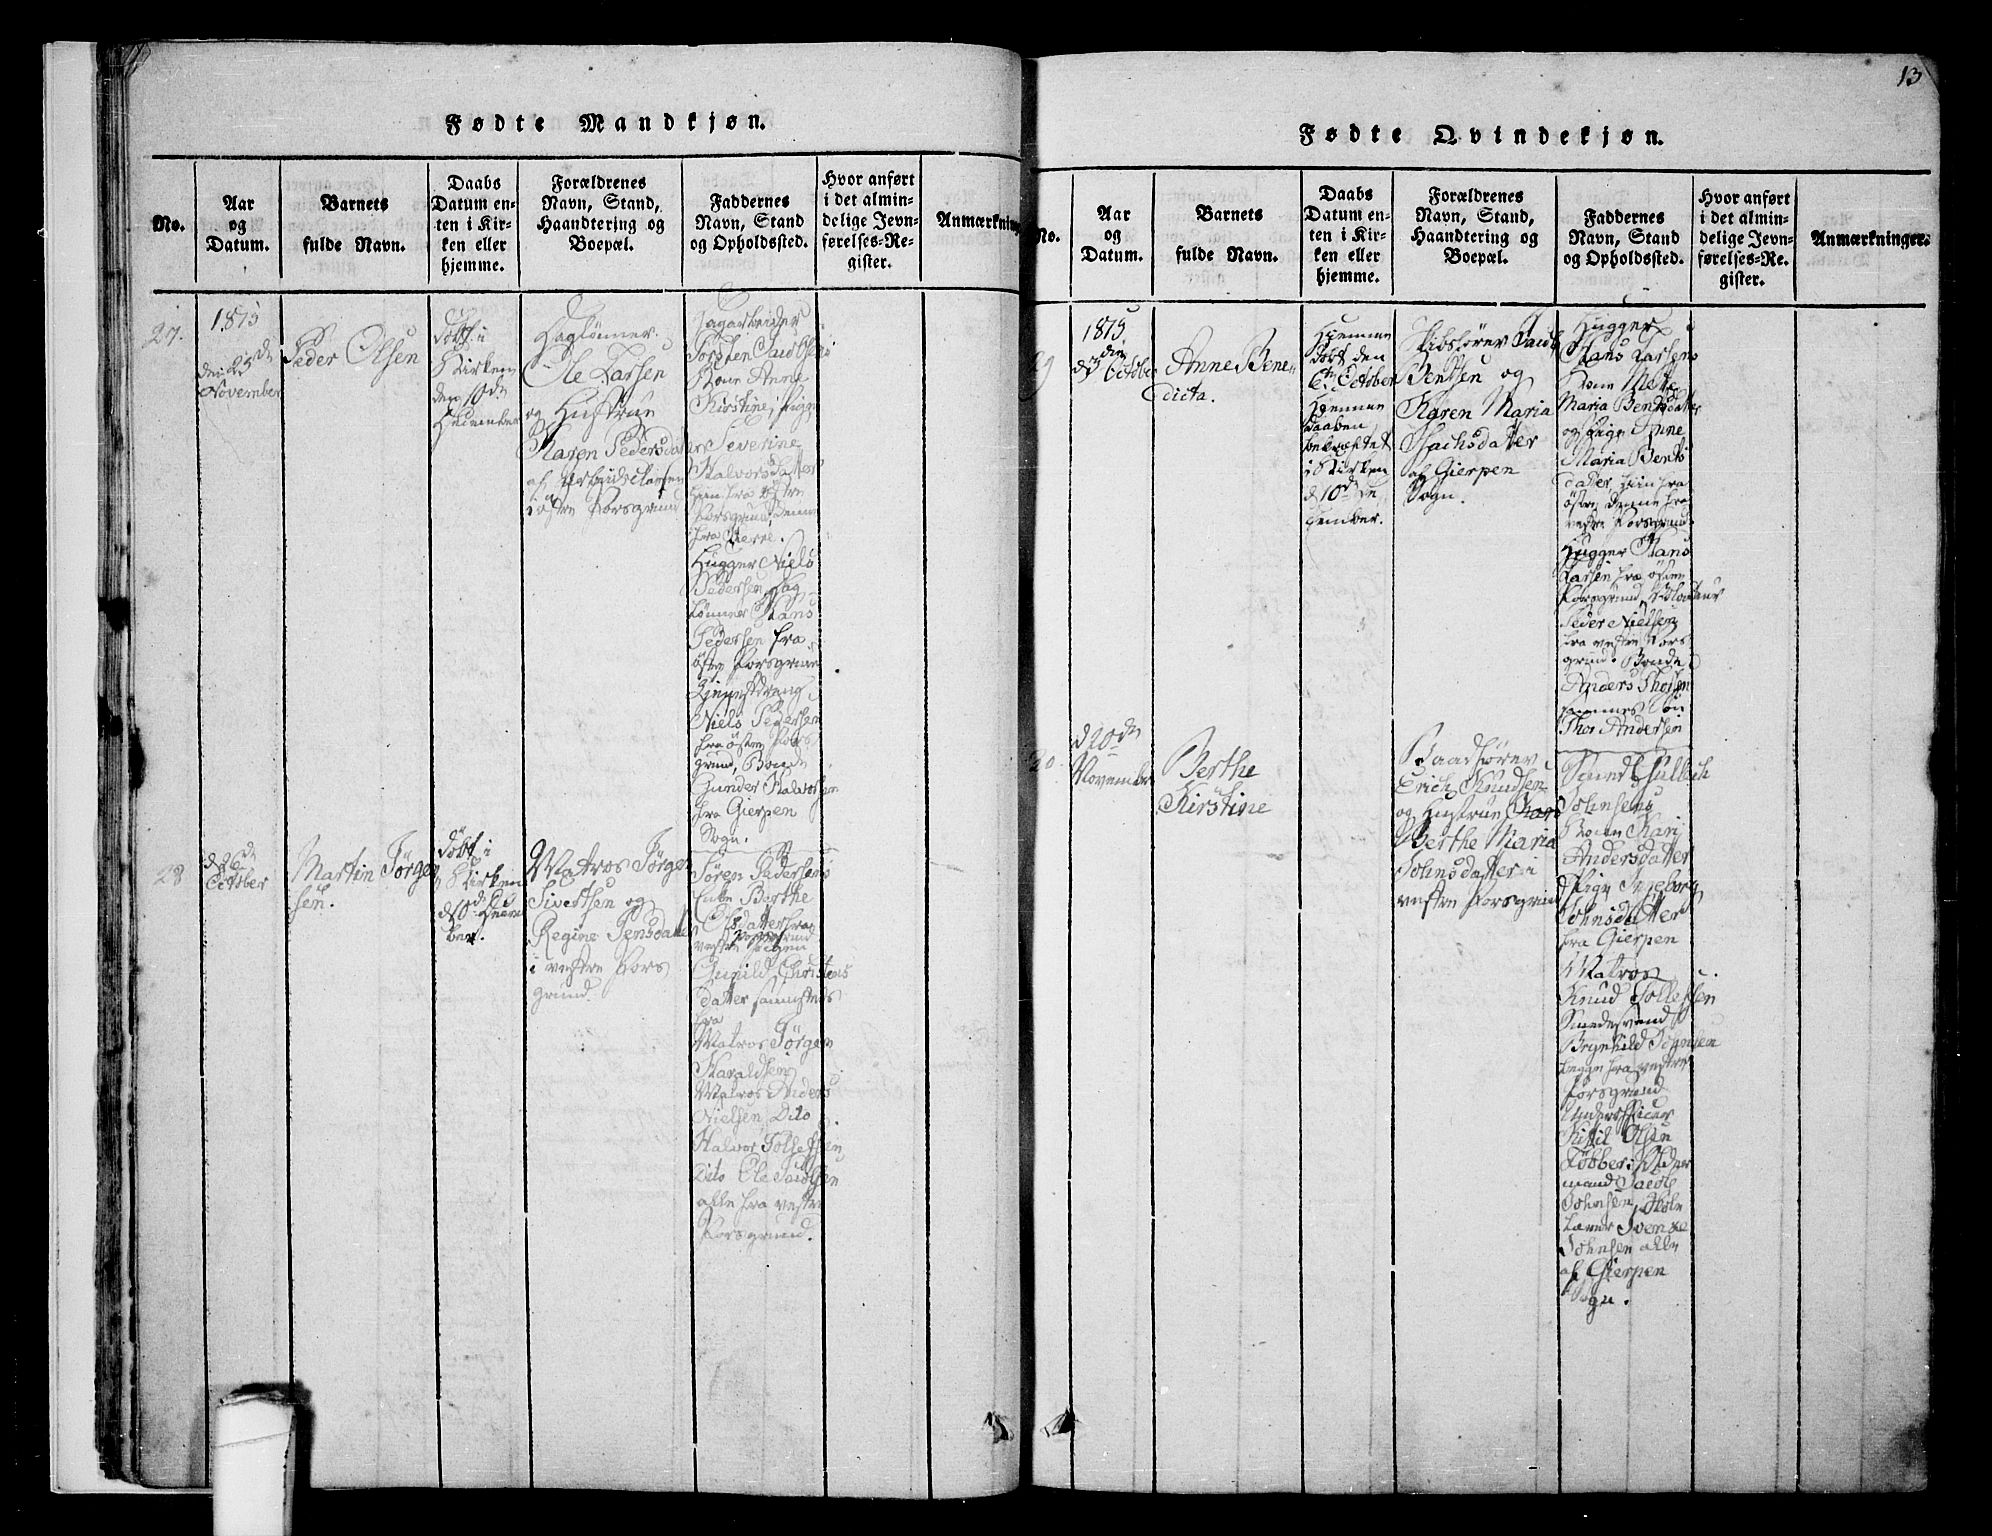 Fødte Mandkjøn.
No.
Aar
og
Datum.
Barnets
fulde Navn.
Daabs
Datum en-
ten i Kir-
ken eller
hjemme.
Forældrenes
Navn, Stand,
Haandtering og
Boepæl.
Faddernes
Navn, Stand
og Opholdssted.
Hvor anført
i det almin-
delige Jevn-
førelses-Re-
gister.
Anmærkning
27.
1815
den 25de
November
Peder Olsen
Døbt i
Kirken
den 10de
December
Daglønner
Ole Larsen
og Hustrue
Karen Pedersdatter
i østre Porsgrund
Dagarbeider
Torsten Jacobsens
Kone Anne
Kirstine, Pige
Severine
Halvorsdatter
hiin fra østre
Porsgrund, denne
fra
Hugger Niels
Pedersen, Dag
lønner Hans
Pedersen fra
østre Porsgrund
Niels Pedersen
fra østre Pors
grund, Bonde
Gunder Halvorsen
fra Gierpen
Sogn.
28
d 26de
October
Martin Jørgen
sen.
døbt i
Kirken
d 10de Decem
ber.
Matros Jørgen
Sivertsen og
Regine Jensdatter
i vestre Pors
grund.
Søren Pedersens
Enke Berthe
Olsdatter fra
vestre Porsgrund
Pigen
Gunild Christens
datter sammesteds
fra
Matros Jørgen
Haraldsen
Matros Anders
Nielsen, Dito
Halvor Tollefsen
Dito Ole Jacobsen
alle fra vestre
Porsgrund.
13
Fødte Qvindekjøn.
No.
Aar
og
Datum.
Barnets
fulde Navn.
Daabs
Datum en-
ten i Kir-
ken eller
hjemme.
Forældrenes
Navn, Stand,
Haandtering og
Boepæl.
Faddernes
Navn, Stand
og Opholdssted.
Hvor anført
i det almin-
delige Jevn-
førelses-Re-
gister.
Anmærkninger.
29
1815
d 3die October
Anne Bene-
dicta.
Hjemme
døbt den
6te October
Hjemme
daaben
bekræftet
i Kirken
d 10de De
cember.
Skibsfører Jacob
Bentsen og
Karen Maria
Isachsdatter
af Gierpen
Sogn.
Hugger
Hans Larsens
Kone Mette
Maria Bentsdatter
og Pige Anne
Maria Bents
datter, hiin fra
østre, denne fra
vestre Porsgrund.
Hugger Hans
Larsen fra østre
Porsgrund,
Peder Nielsen
fra vestre Pors
grund. Bonde
Anders Thorsen
sammes Søn
Thor Andersen
30.
d 20de
November
Berthe
Kirstine
Baadfører
Erich Knudsen
og Hustrue
Berthe Maria
Johnsdatter i
vestre Porsgrund
Smed
Johnsens
Kone Kari
Andersdatter
Pige Ingeborg
Johnsdatter
fra Gierpen
Matros
Knud Tollefsen
Smedesvend
Brynild Johnsen
begge fra vestre
Porsgrund
Underofficer
Kittil Olsen
mand Jacob
Johnsen, Skole
lærer
Johnsen alle
af Gierpen
Sogn.